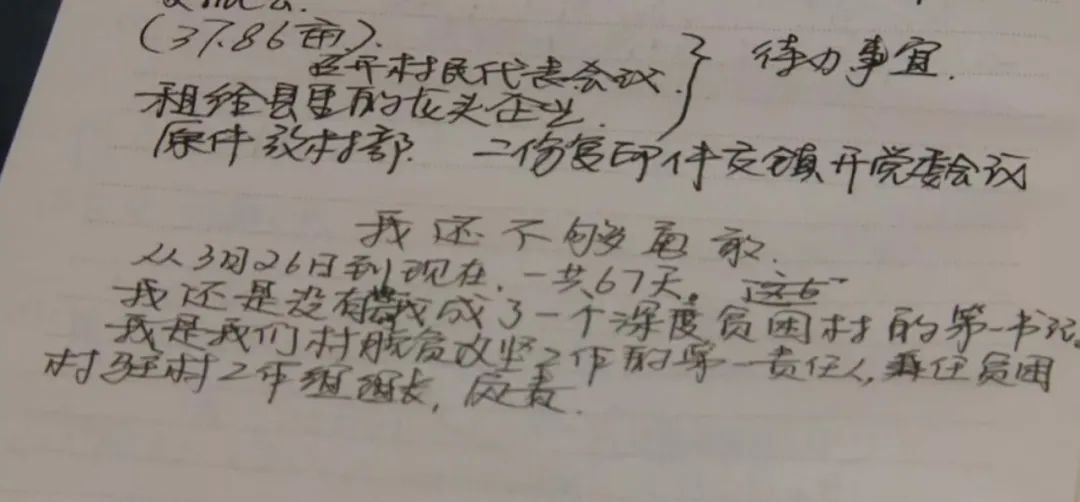 (37.86亩).
召开村民代表会议. 待办事宜.
租给县里的龙头企业.
原件放村部. 二份复印件交镇开党委会议
我还不够勇敢.
从3月26日到现在, 一共67天。这6
我还是没有 我成了一个深度贫困村的第一书记。
我是我们村脱贫攻坚工作的第一责任人, 兼任贫困
村驻村工作组组长, 应责.